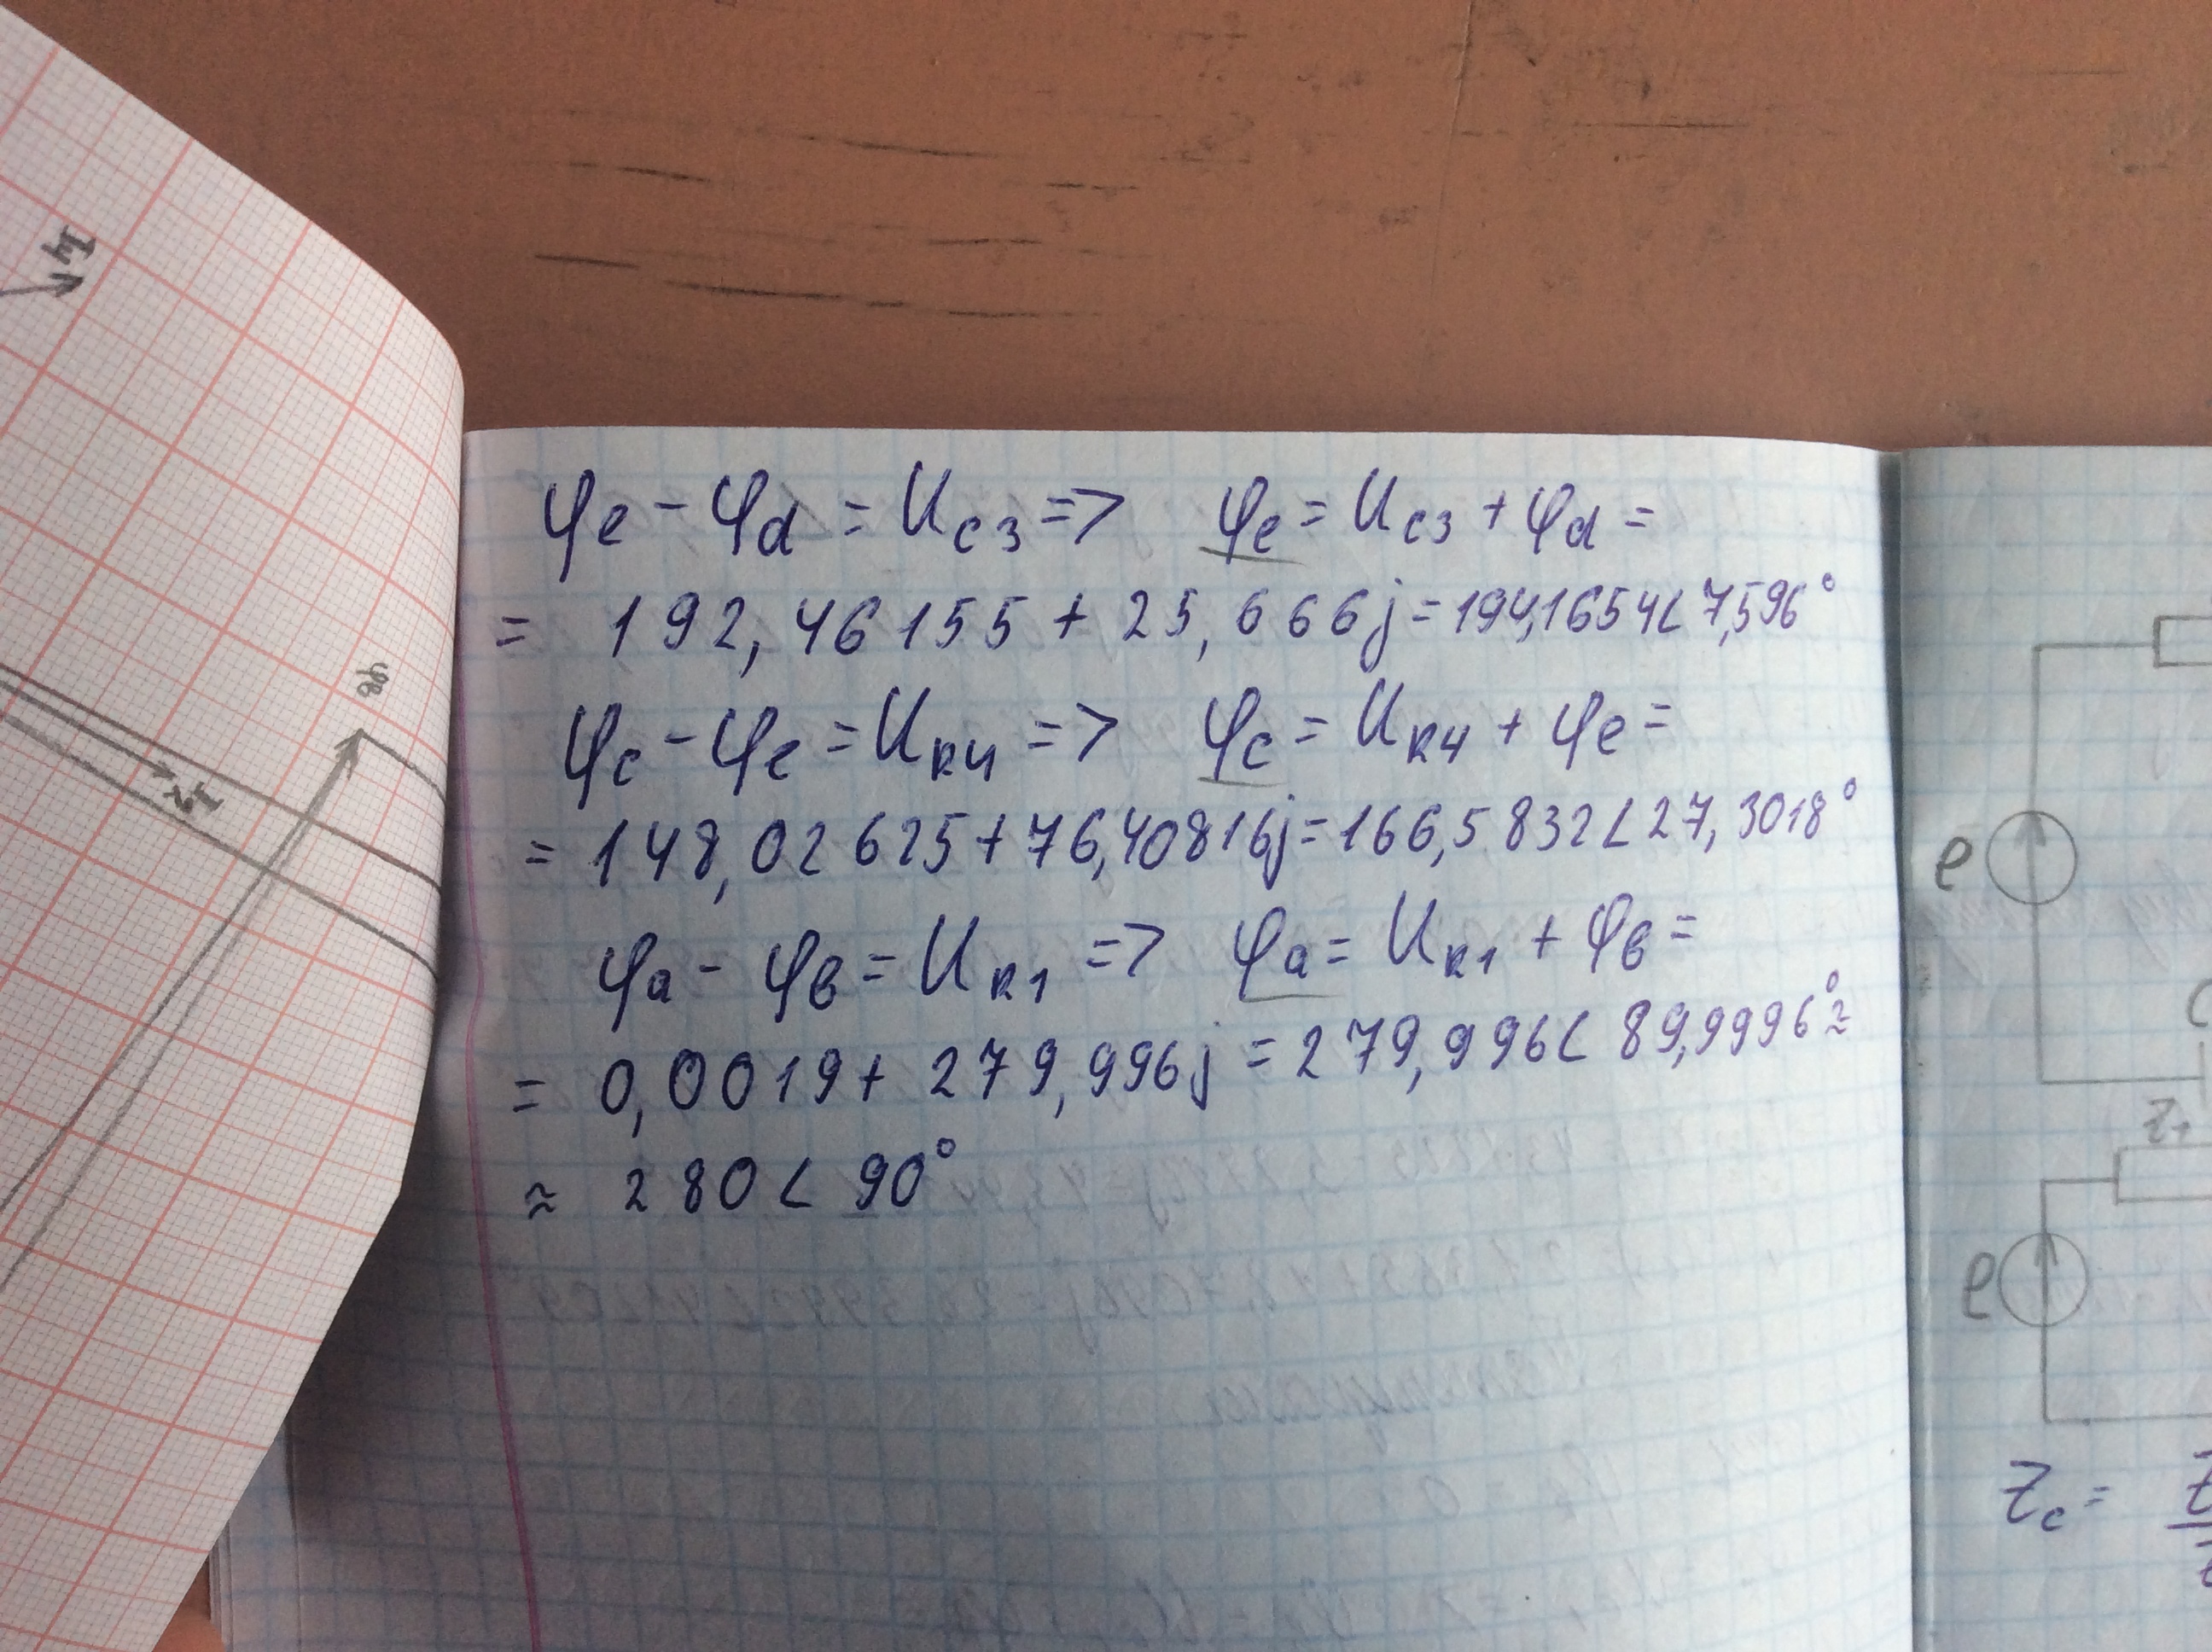 φe - φd = Uc3 => φe = Uc3 + φd =
= 192,46155 + 25,666j = 194,1654 < 7,596°
φc - φe = UR4 => φc = UR4 + φe =
= 148,02625 + 76,40816j = 166,5832 < 27,3018°
φa - φв = UR1 => φa = UR1 + φв =
= 0,0019 + 279,996j = 279,996 < 89,9996° ≈
≈ 280 < 90°
I4
φв
I2
e
C
Z1
e
Zc =